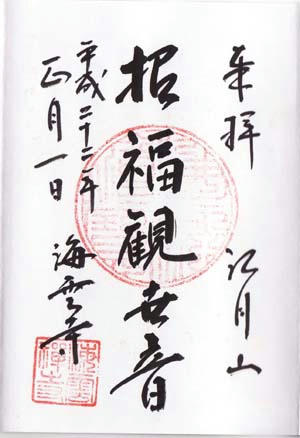 奉拝 江月山
招福観世音
平成二十二年
正月一日 海雲寺